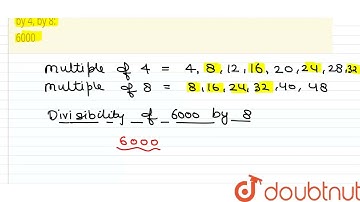 by 4, by 8:
6000
Multiple of 4 = 4, 8, 12, 16, 20, 24, 28, 32
Multiple of 8 = 8, 16, 24, 32, 40, 48
Divisibility of 6000 by 8
6000
doubtnut